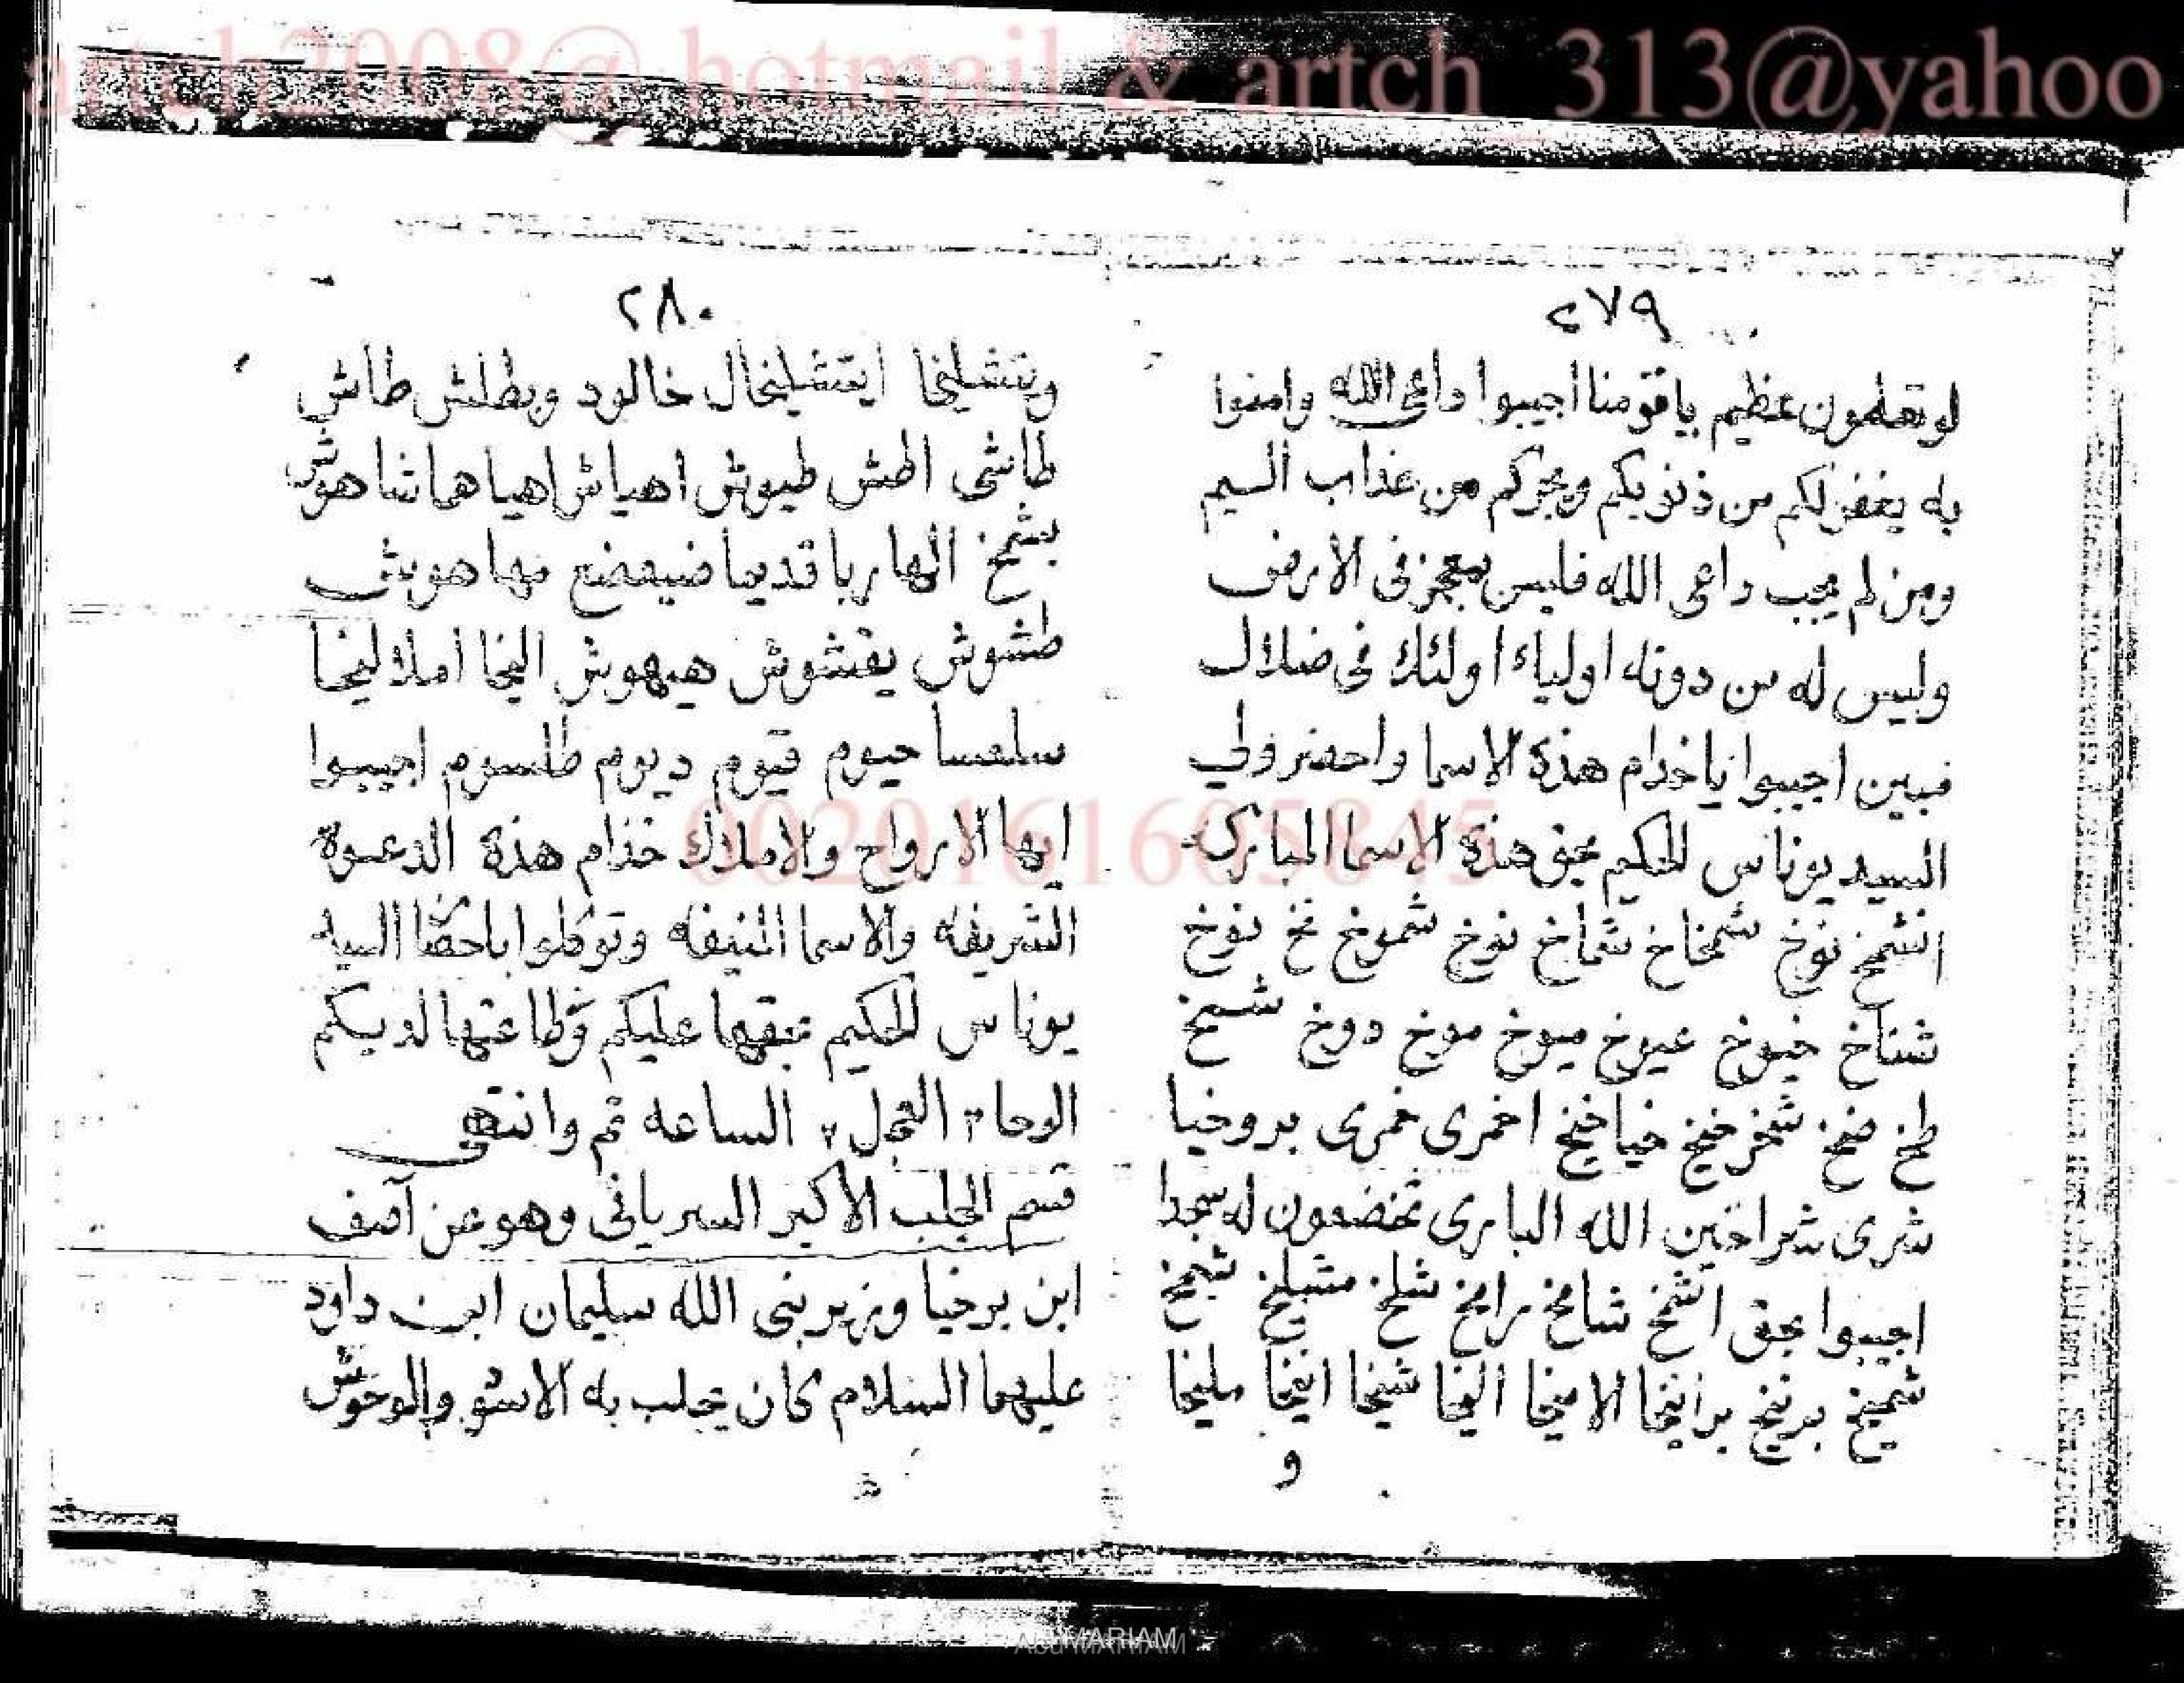 artch2008@ hotmail & artch_313@yahoo
٢٧٩
لو تعلمون عظيم ياقومنا اجيبوا داعى الله وامنوا
به يغفر لكم من ذنوبكم ويجركم من عذاب اليم
ومن لم يجب داعى الله فليس بمعجز فى الارض
وليس له من دونه اولياء اولئك فى ضلال
مبين اجيبوا ياخدام هذه الاسما واحضرولى
السيد يوناس الحكيم بحق هذه الاسما المباركه
انشمخ نوخ شمخاخ شماخ نوخ شموخ نخ نوخ
شناخ خيوخ عيوخ ميوخ موخ دوخ شمخ
طمخ ضمخ خياخيخ اخمرى خمرى بروخيا
شرى شراحين الله البارى تخضعون له سجدا
اجيبوا بحق اشمخ شامخ برامخ شلخ مشيلخ
شميخ برنيخ برانيخا الاميخا
و
٢٨٠
خالود وبطلش طاش
طاشى اطش طيوش اهياش اهيا هماشاهوش
بشمخ الها ربا قديما مهاهوبش
طشوش يقشوش هيهوش
سلمسا حيوم قيوم ديوم طلسوم اجيبوا
ايها الارواح والاملاك خدام هذه الدعوة
الشريفه والاسما المنيفه وتوكلوا باحضا السيد
يوناس الحكيم بحقها عليكم وطاعتها لديكم
الوحا ٢ العجل ٢ الساعه تم وانتهى
قسم الجلب الاكبر السريانى وهو عن آصف
ابن برخيا وزير نبى الله سليمان ابن داود
عليهما السلام كان يجلب به الانس والوحوش
0020161605845
Abu MARIAM